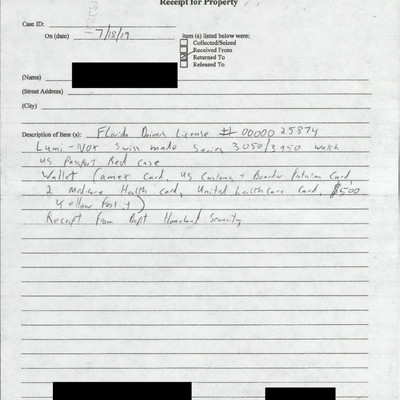 Receipt for Property
Case ID:
On (date) -7/18/19 item (s) listed below were:
Collected/Seized
Received From
Returned To
Released To
(Name)
(Street Address)
(City)
Description of Item (s): Florida Drivers License # 00000 25874
Lumi-Nox Swiss made Series 3050/3950 watch
US Passport Red Case
Wallet (amex Card, US Customs + Boarder Card,
2 Medicare Health Card, United healthcare Card, $500
Yellow Post it)
Receipt from Dept Homeland Security